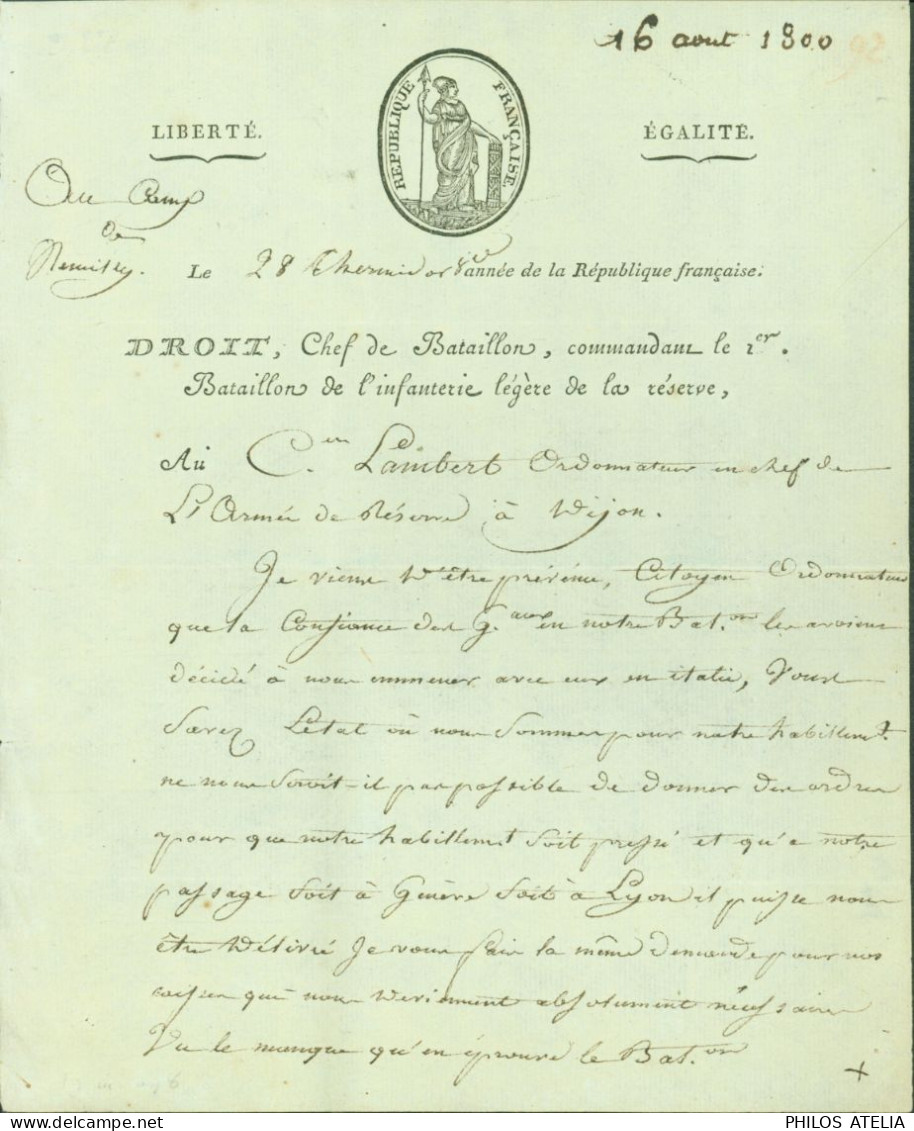 16 aout 1800
92
LIBERTÉ.
RÉPUBLIQUE FRANÇAISE
ÉGALITÉ.
Au Camp
de
Le 28 Thermidor 8e année de la République française.
DROIT, Chef de Bataillon, commandant le 1er.
Bataillon de l'infanterie légère de la réserve,
Au C.en Lambert Ordonnateur en chef de
L'Armée de Réserve à Dijon.
Je viens d'être prévenu, Citoyen Ordonnateur
que la Confiance des G.aux en notre Bat.on les avoient
décidé à nous emmener avec eux en italie, Vous
Savez L'etat où nous Sommes pour notre habillemt.
ne nous Seroit-il pas possible de donner des ordres
pour que notre habillemt soit pressé et qu'a notre
passage soit à Genève soit à Lyon il puisse nous
être délivré Je vous fais la même demande pour nos
caisses qui nous deviennent absolument nécessaires
Vu le manque qu'en éprouve le Bat.on
+
PHILOS ATELIA